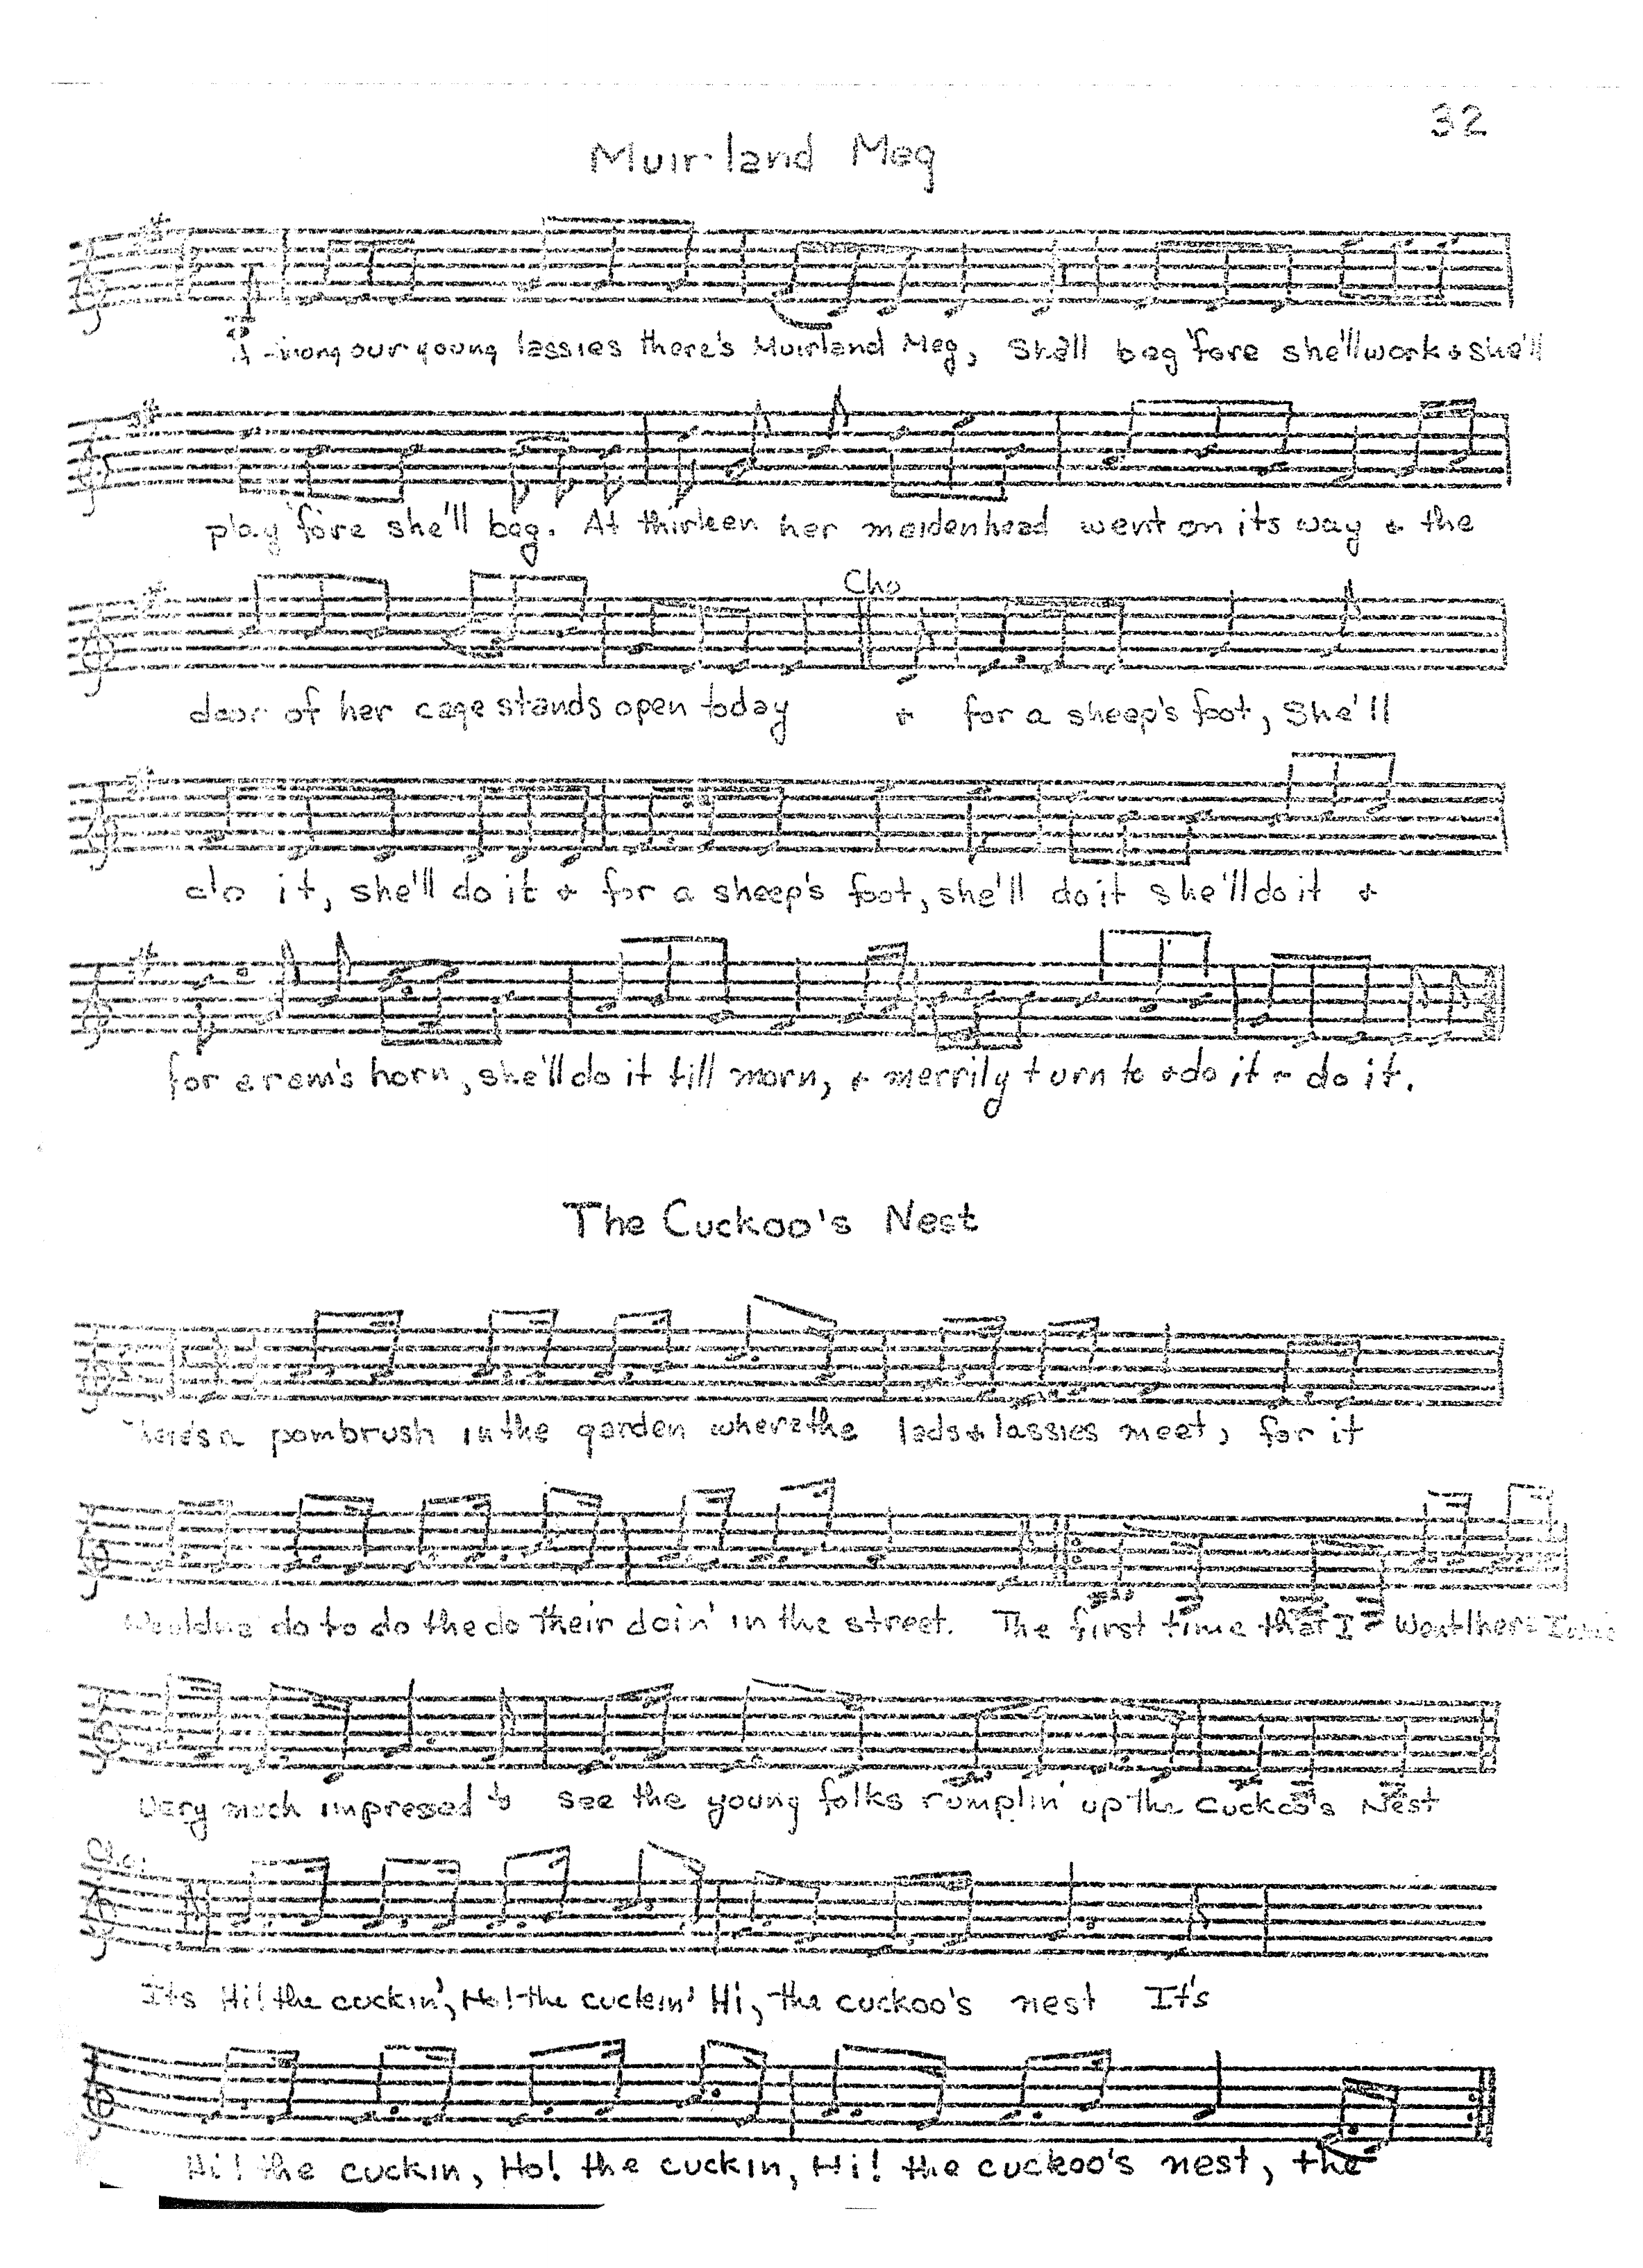 32
Muir-land Meg
A-mong our young lassies there's Muirland Meg, She'll beg 'fore she'll work & she'll
play 'fore she'll beg. At thirteen her maidenhead went on its way & the
Cho
door of her cage stands open today & for a sheep's foot, She'll
do it, she'll do it & for a sheep's foot, she'll do it she'll do it &
for a ram's horn, she'll do it till morn, & merrily turn to & do it & do it.
The Cuckoo's Nest
There's a pombrush in the garden where the lads & lassies meet, for it
Wouldna do to do the do Their doin' in the street. The first time that I Went there I was
Very much impressed to see the young folks rumplin' up the Cuckoo's Nest
Cho:
It's Hi! the cuckin', Ho! the cuckin' Hi, the cuckoo's nest It's
Hi! the cuckin, Ho! the cuckin, Hi! the cuckoo's nest, the